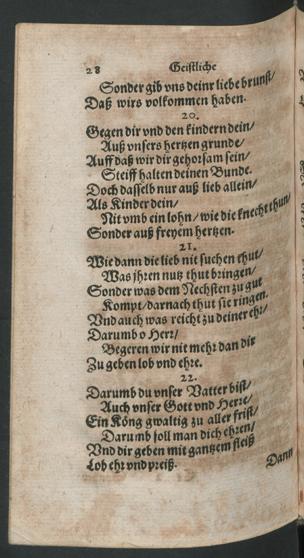 28 Geistliche
Sonder gib vns deinr liebe brunst/
Daß wirs volkommen haben.
20.
Gegen dir vnd den kindern dein/
Auß vnsers hertzen grunde/
Auff daß wir dir gehorsam sein/
Steiff halten deinen Bunde.
Doch dasselb nur auß lieb allein/
Als Kinder dein/
Nit vmb ein lohn/ wie die knecht thun/
Sonder auß freyem hertzen.
21.
Wie dann die lieb nit suchen thut/
Was jhren nutz thut bringen/
Sonder was dem Nechsten zu gut
Kompt/ darnach thut sie ringen.
Vnd auch was reicht zu deiner ehr/
Darumb o Herr/
Begeren wir nit mehr dan dir
Zu geben lob vnd ehre.
22.
Darumb du vnser Vatter bist/
Auch vnser Gott vnd Herre/
Ein Köng gwaltig zu aller frist/
Darumb soll man dich ehren/
Vnd dir geben mit gantzem fleiß
Lob ehr vnd preiß.
Dann